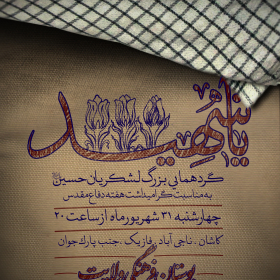 یا شهید
گردهمایی بزرگ لشکریان حسین
به مناسبت گرامیداشت هفته دفاع مقدس
چهارشنبه ۳۱ شهریور ماه از ساعت ۲۰
کاشان . ناجی آباد . فاز یک . جنب پارک جوان
بوستان فرهنگی ولایت